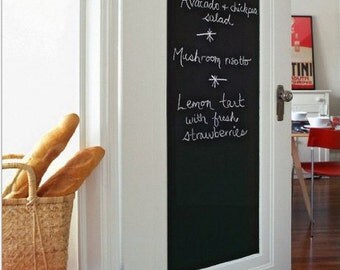 Avocado + chickpea
salad
Mushroom risotto
Lemon tart
with fresh
strawberries
TINI